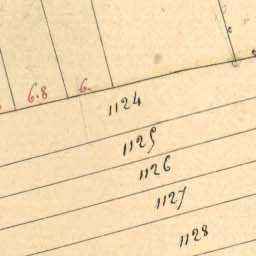 6.8 6.
1124
1125
1126
1127
1128